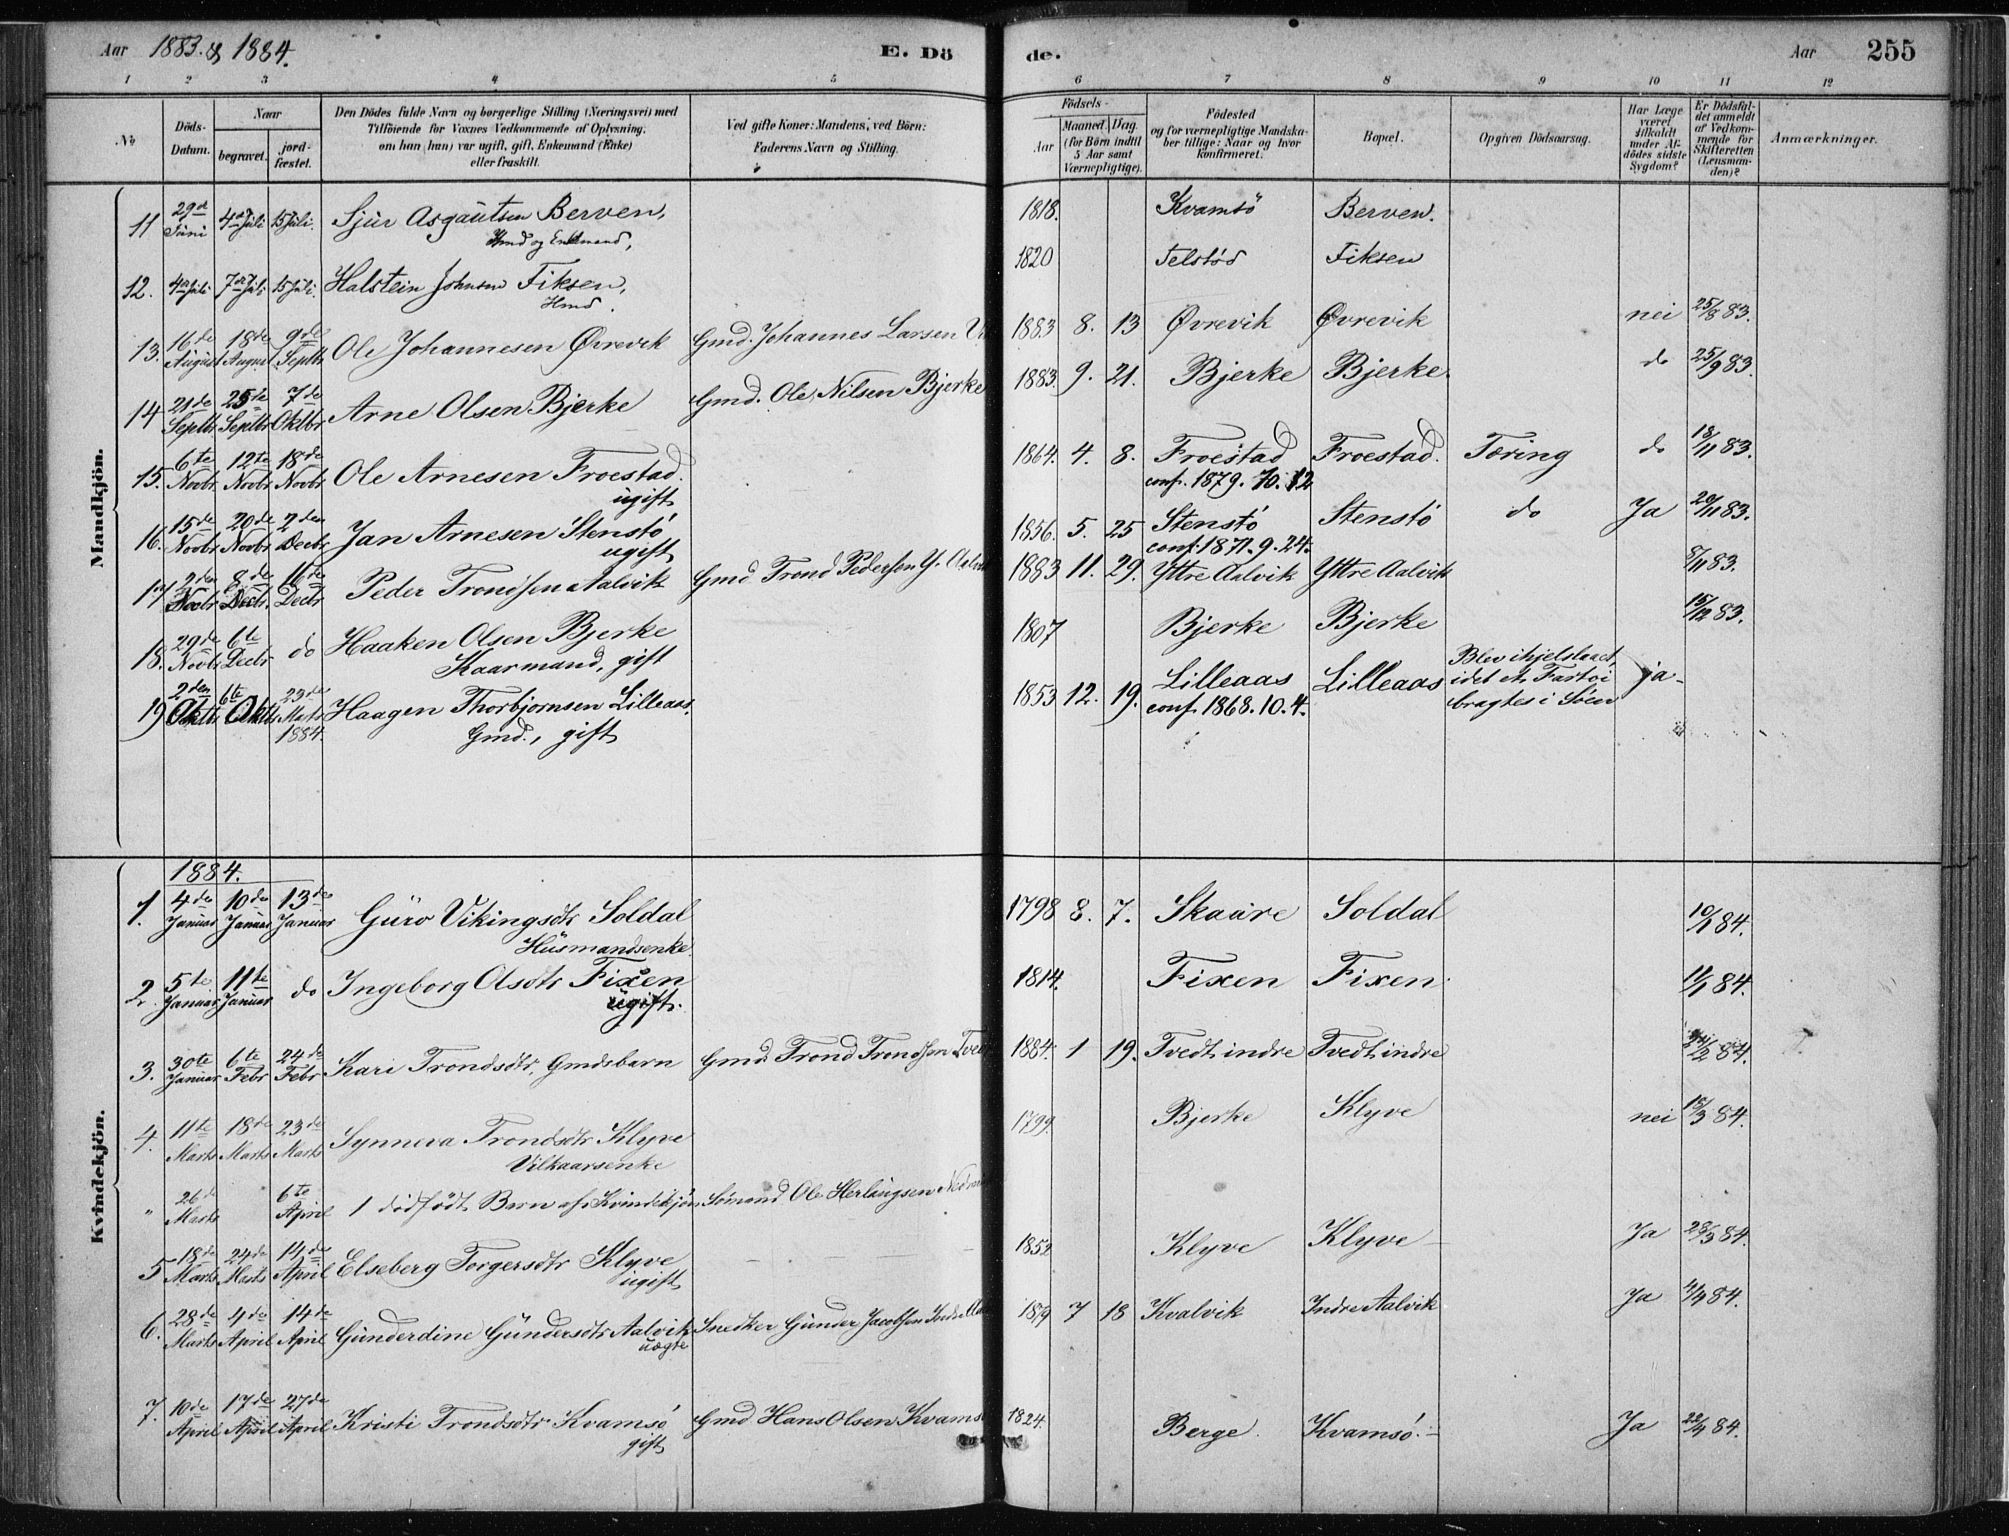 Aar 1883. & 1884. E. Dö de. Aar 255
1 2 3 4 5 6 7 8 9 10 11 12
No
Döds-Datum.
Naar
begravet.
jord-fæstet.
Den Dödes fulde Navn og borgerlige Stilling (Næringsvei) med
Tilföiende for Voxnes Vedkommende af Oplysning,
om han (hun) var ugift, gift, Enkemand (Enke)
eller fraskilt.
Ved gifte Koner: Mandens, ved Börn:
Faderens Navn og Stilling.
Födsels-
Aar
Maaned. Dag.
(for Börn indtil
5 Aar samt
Værnepligtige).
Födested
og for værnepligtige Mandska-
ber tillige: Naar og hvor
konfirmeret.
Bopæl.
Opgiven Dödsaarsag.
Har Læge
været
tilkaldt
under Af-
dödes sidste
Sygdom?
Er Dödsfal-
det anmeldt
af Vedkom-
mende for
Skifteretten
(Lensman-
den)?
Anmærkninger.
Mandkjön.
11 29de Juni 4de Juli 15 Juli. Sjur Asgautsen Berven, 1818. Kvamsö Berven.
Hmd og Enkmand,
12. 4de Juli 7de Juli 15 Juli. Halstein Johnsen Fiksen, 1820 Fiksen
Hmd.
13. 16de August 18de August 9de Septbr Ole Johannesen Øvrevik Gmd. Johannes Larsen 1883 8. 13 Øvrevik Øvrevik nei 25/8 83.
14 21de Septbr 25de Septbr 7de Oktbr Arne Olsen Bjerke Gmd. Ole Nilsen Bjerke 1883. 9. 21. Bjerke Bjerke. do 25/9 83.
15. 6te Novbr 12te Novbr 18de Novbr Ole Arnesen Froestad. 1864. 4. 8. Froestad Froestad. Tæring do 18/11 83.
ugift conf. 1879. 10. 12
16. 15de Novbr 20de Novbr 2den Decbr Jan Arnesen Stenstö 1856. 5. 25 Stenstö Stenstö do Ja 20/11 83.
ugift conf. 1871. 9. 24.
17 2den 8de Decbr. 16de Decbr Peder Trondsen Aalvik Gmd Trond Pedersen Y. 1883 11. 29. Yttre Aalvik Yttre Aalvik 8/11 83.
18. 29de Novbr 6te Decbr do Haaken Olsen Bjerke 1807 Bjerke Bjerke 15/12 83.
Kaarmand, gift
19 2den Oktbr 6te Oktbr 23de Marts 1884. Haagen Thorbjornsen Lilleaas. 1853 12. 19. Lilleaas Lilleaas Blev ihjelslaaet, ja
Gmd., gift conf. 1868. 10. 4. idet et Fartøi
bragtes i Søen
Kvindekjön.
1884.
1. 4de Januar 10de Januar 13de Januar Guro Vikingsdtr Soldal 1798 8. 7. Skaare Soldal 10/1 84.
Husmandsenke
2. 5te Januar 11te Januar do Ingeborg Olsdtr Fixen 1814. Fixen Fixen 11/1 84.
ugift.
3. 30te Januar 6te Febr 24de Febr Kari Trondsdtr, Gmdsbarn Gmd. Trond Trondsen 1884. 1 19. Tvedt indre Tvedt indre /2 84.
4. 11te Marts 18de Marts 23de Marts Synneva Trondsdtr Klyve 1799. Bjerke Klyve nei 15/3 84.
Vilkaarsenke
" 26de Marts 6te April 1 dödfödt Barn af Kvindekjön Sømand Ole Herlaugsen
5 18de Marts 24de Marts 14de April Elseberg Torgersdtr Klyve 1852 Klyve Klyve Ja 28/3 84.
ugift
6. 28de Marts 4de April 14de April Gunderdine Gundersdtr Aalvik Snedker Gunder Jacobsen Indre 1879 7 18 Kvalvik Indre Aalvik Ja 4/4 84.
uægte
7. 10de April 17de April 27de April Kristi Trondsdtr Kvamsö Gmd Hans Olsen Kvams 1824. Berge Kvamsö. Ja 22/4 84.
gift